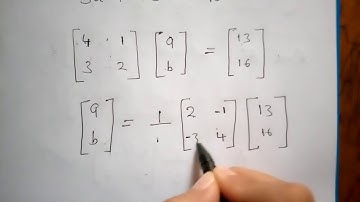 [4 1; 3 2] [a; b] = [13; 16]
[a; b] = 1/. [2 -1; -3 4] [13; 16]